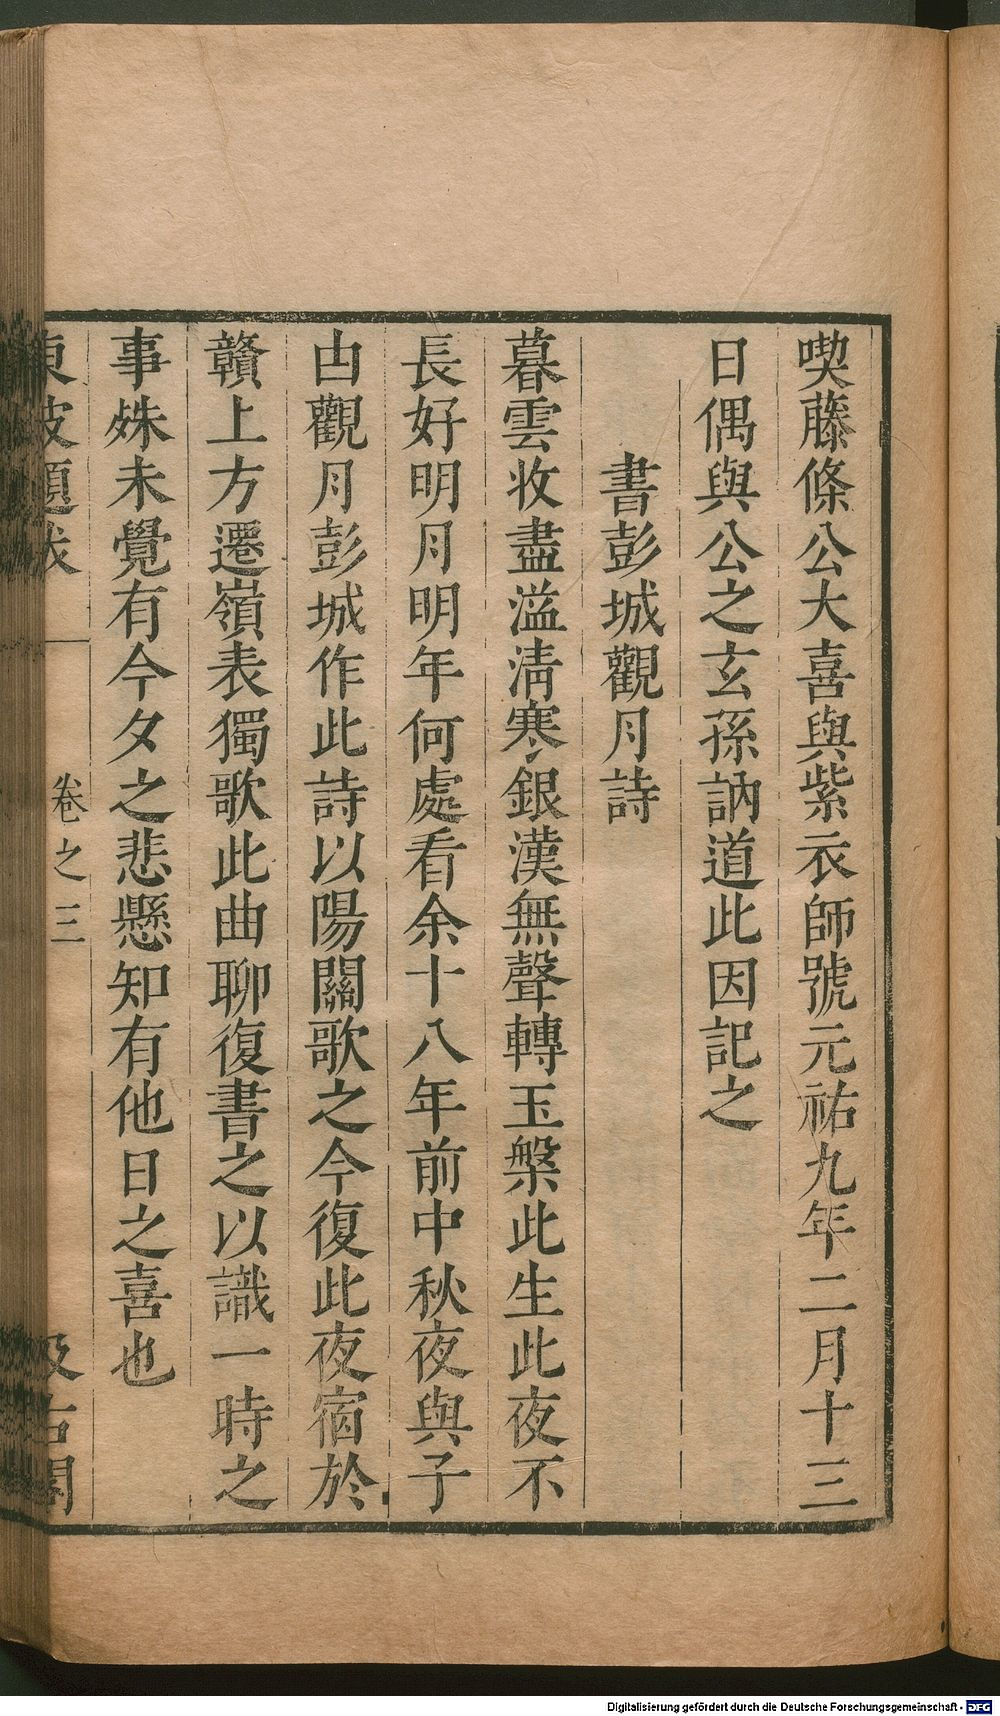 喫藤條公大喜與紫衣師號元祐九年二月十三
日偶與公之玄孫訥道此因記之
書彭城觀月詩
暮雲收盡溢清寒銀漢無聲轉玉槃此生此夜不
長好明月明年何處看余十八年前中秋夜與子
由觀月彭城作此詩以陽關歌之今復此夜宿於
贛上方遷嶺表獨歌此曲聊復書之以識一時之
事姝未覺有今夕之悲懸知有他日之喜也
東坡題跋
卷之三
汲古閣
Digitalisierung gefördert durch die Deutsche Forschungsgemeinschaft - DFG